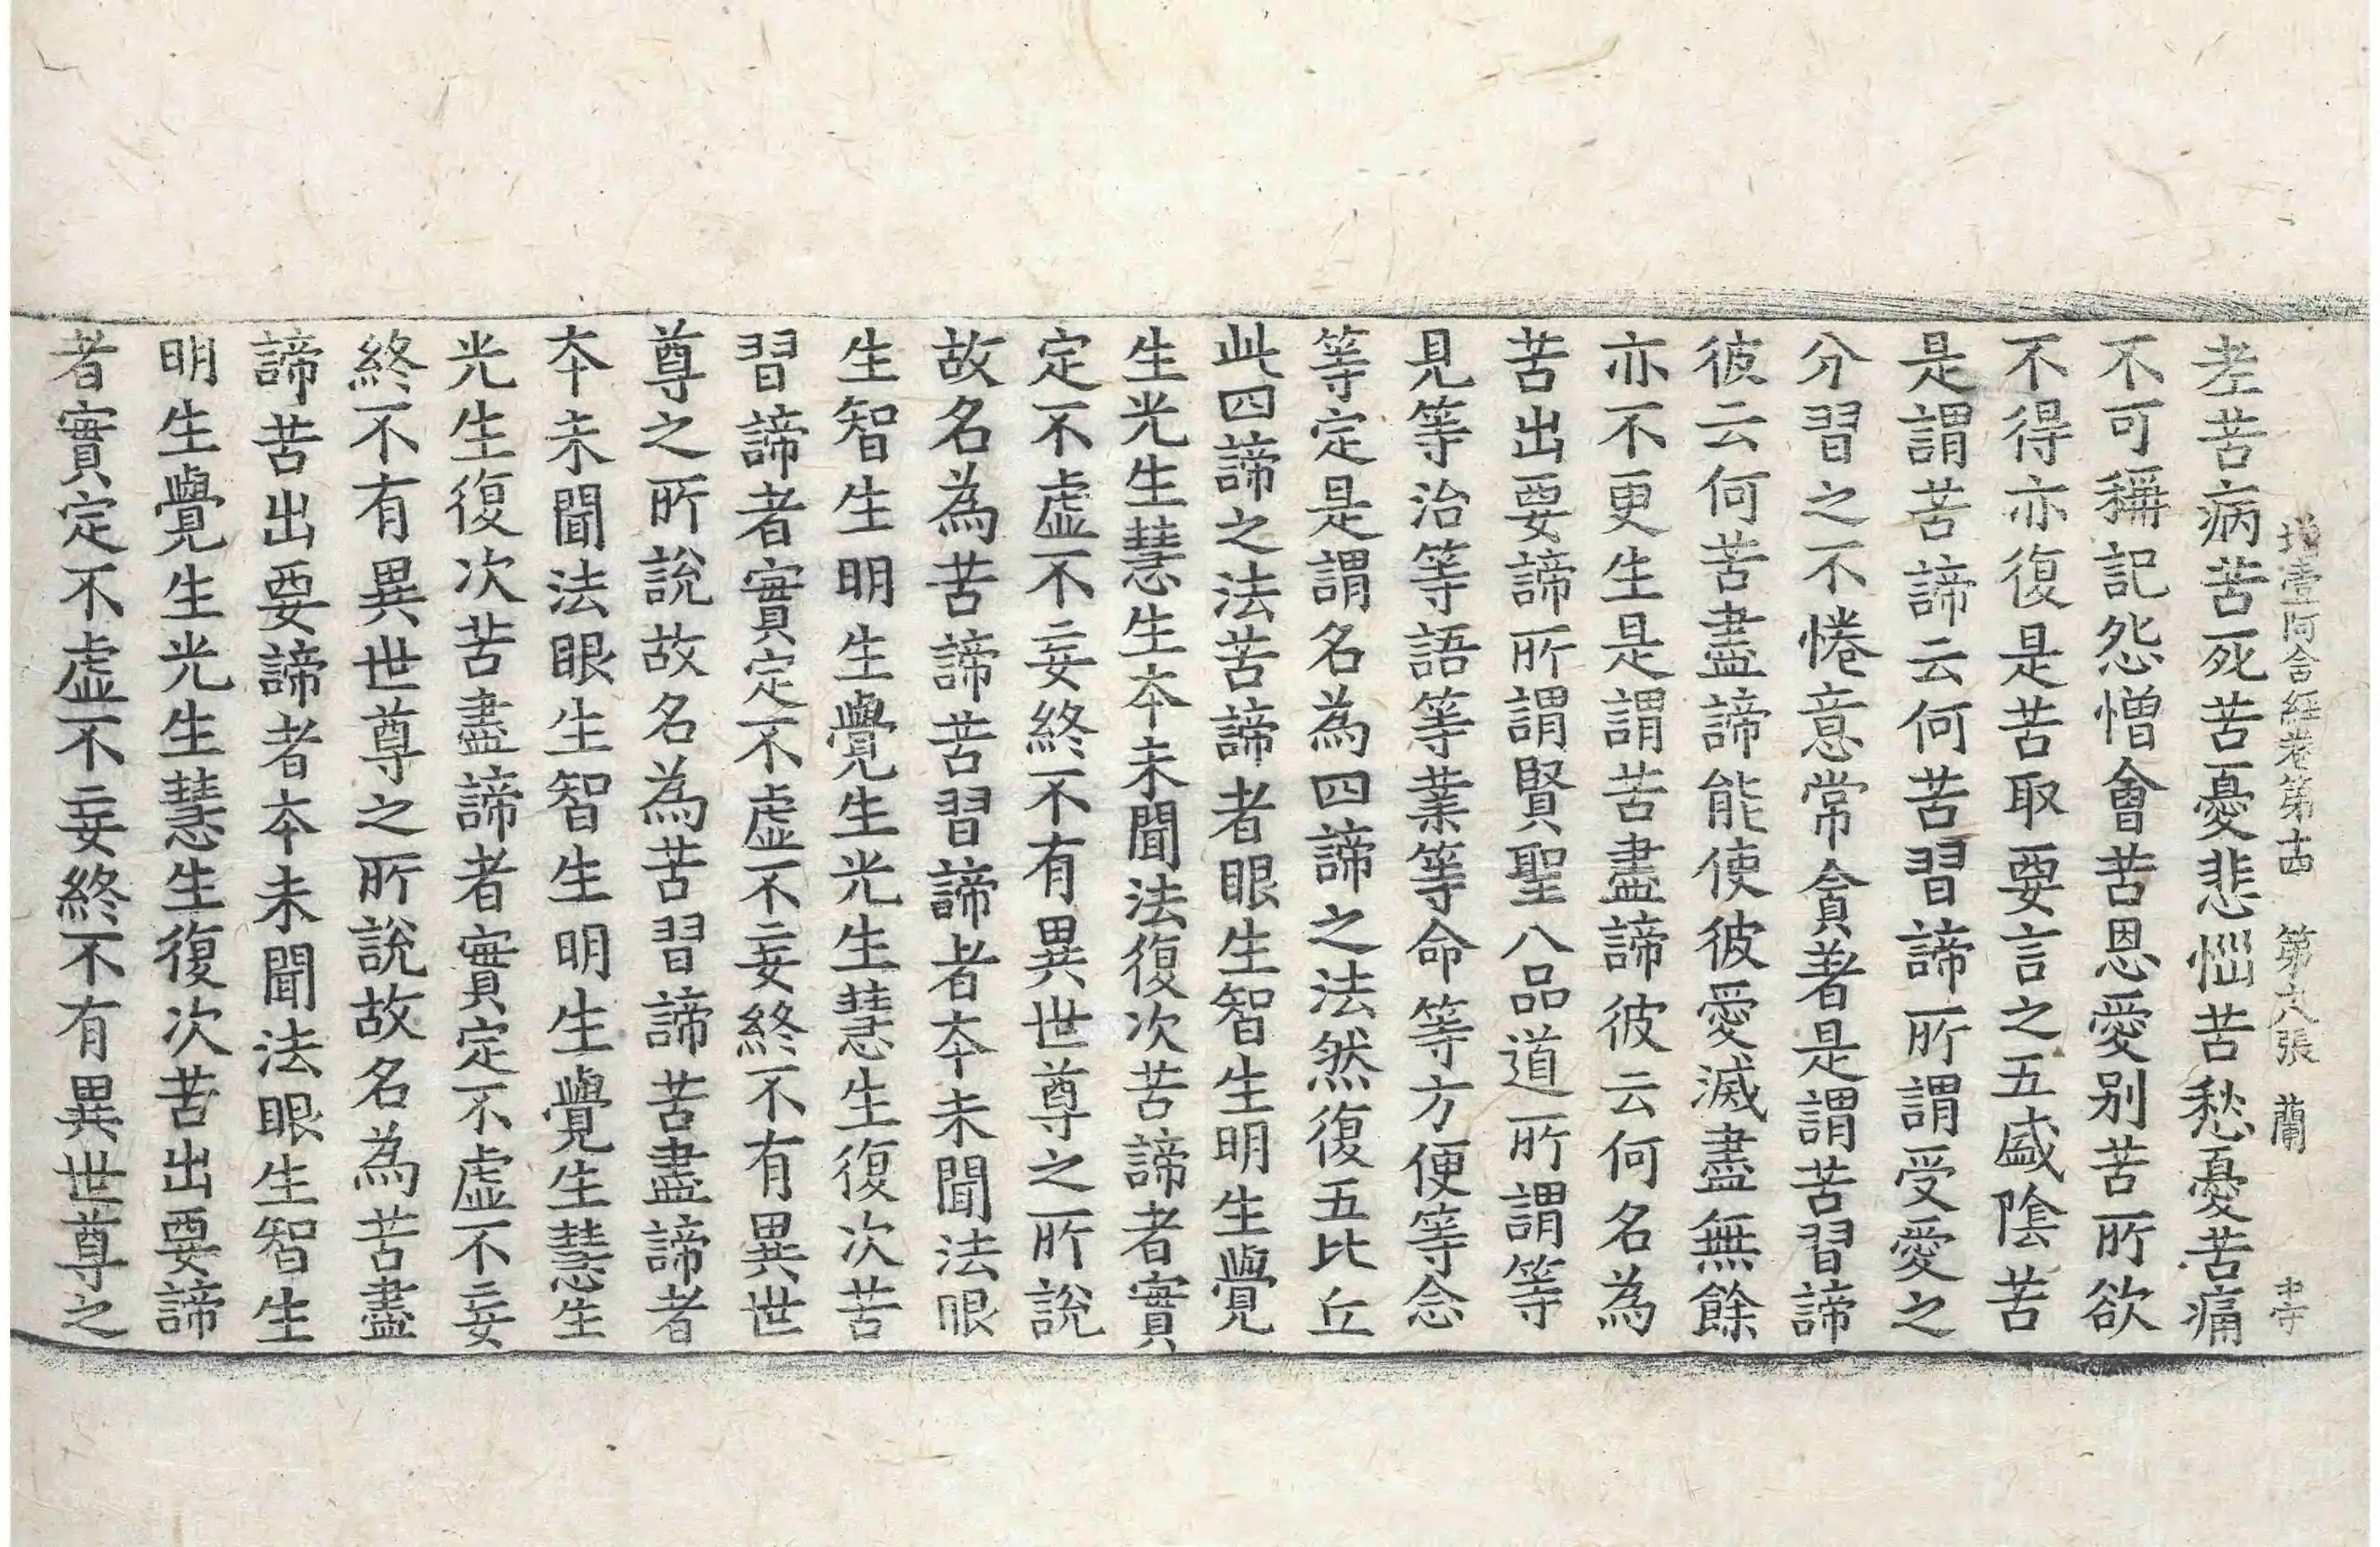 增壹阿含經卷第十四 第六張 蘭 中守
老苦病苦死苦憂悲惱苦愁憂苦痛
不可稱記怨憎會苦恩愛別苦所欲
不得亦復是苦取要言之五盛陰苦
是謂苦諦云何苦習諦所謂受愛之
分習之不惓意常貪著是謂苦習諦
彼云何苦盡諦能使彼愛滅盡無餘
亦不更生是謂苦盡諦彼云何名為
苦出要諦所謂賢聖八品道所謂等
見等治等語等業等命等方便等念
等定是謂名為四諦之法然復五比丘
此四諦之法苦諦者眼生智生明生覺
生光生慧生本未聞法復次苦諦者實
定不虛不妄終不有異世尊之所說
故名為苦諦苦習諦者本未聞法眼
生智生明生覺生光生慧生復次苦
習諦者實定不虛不妄終不有異世
尊之所說故名為苦習諦苦盡諦者
本未聞法眼生智生明生覺生慧生
光生復次苦盡諦者實定不虛不妄
終不有異世尊之所說故名為苦盡
諦苦出要諦者本未聞法眼生智生
明生覺生光生慧生復次苦出要諦
者實定不虛不妄終不有異世尊之